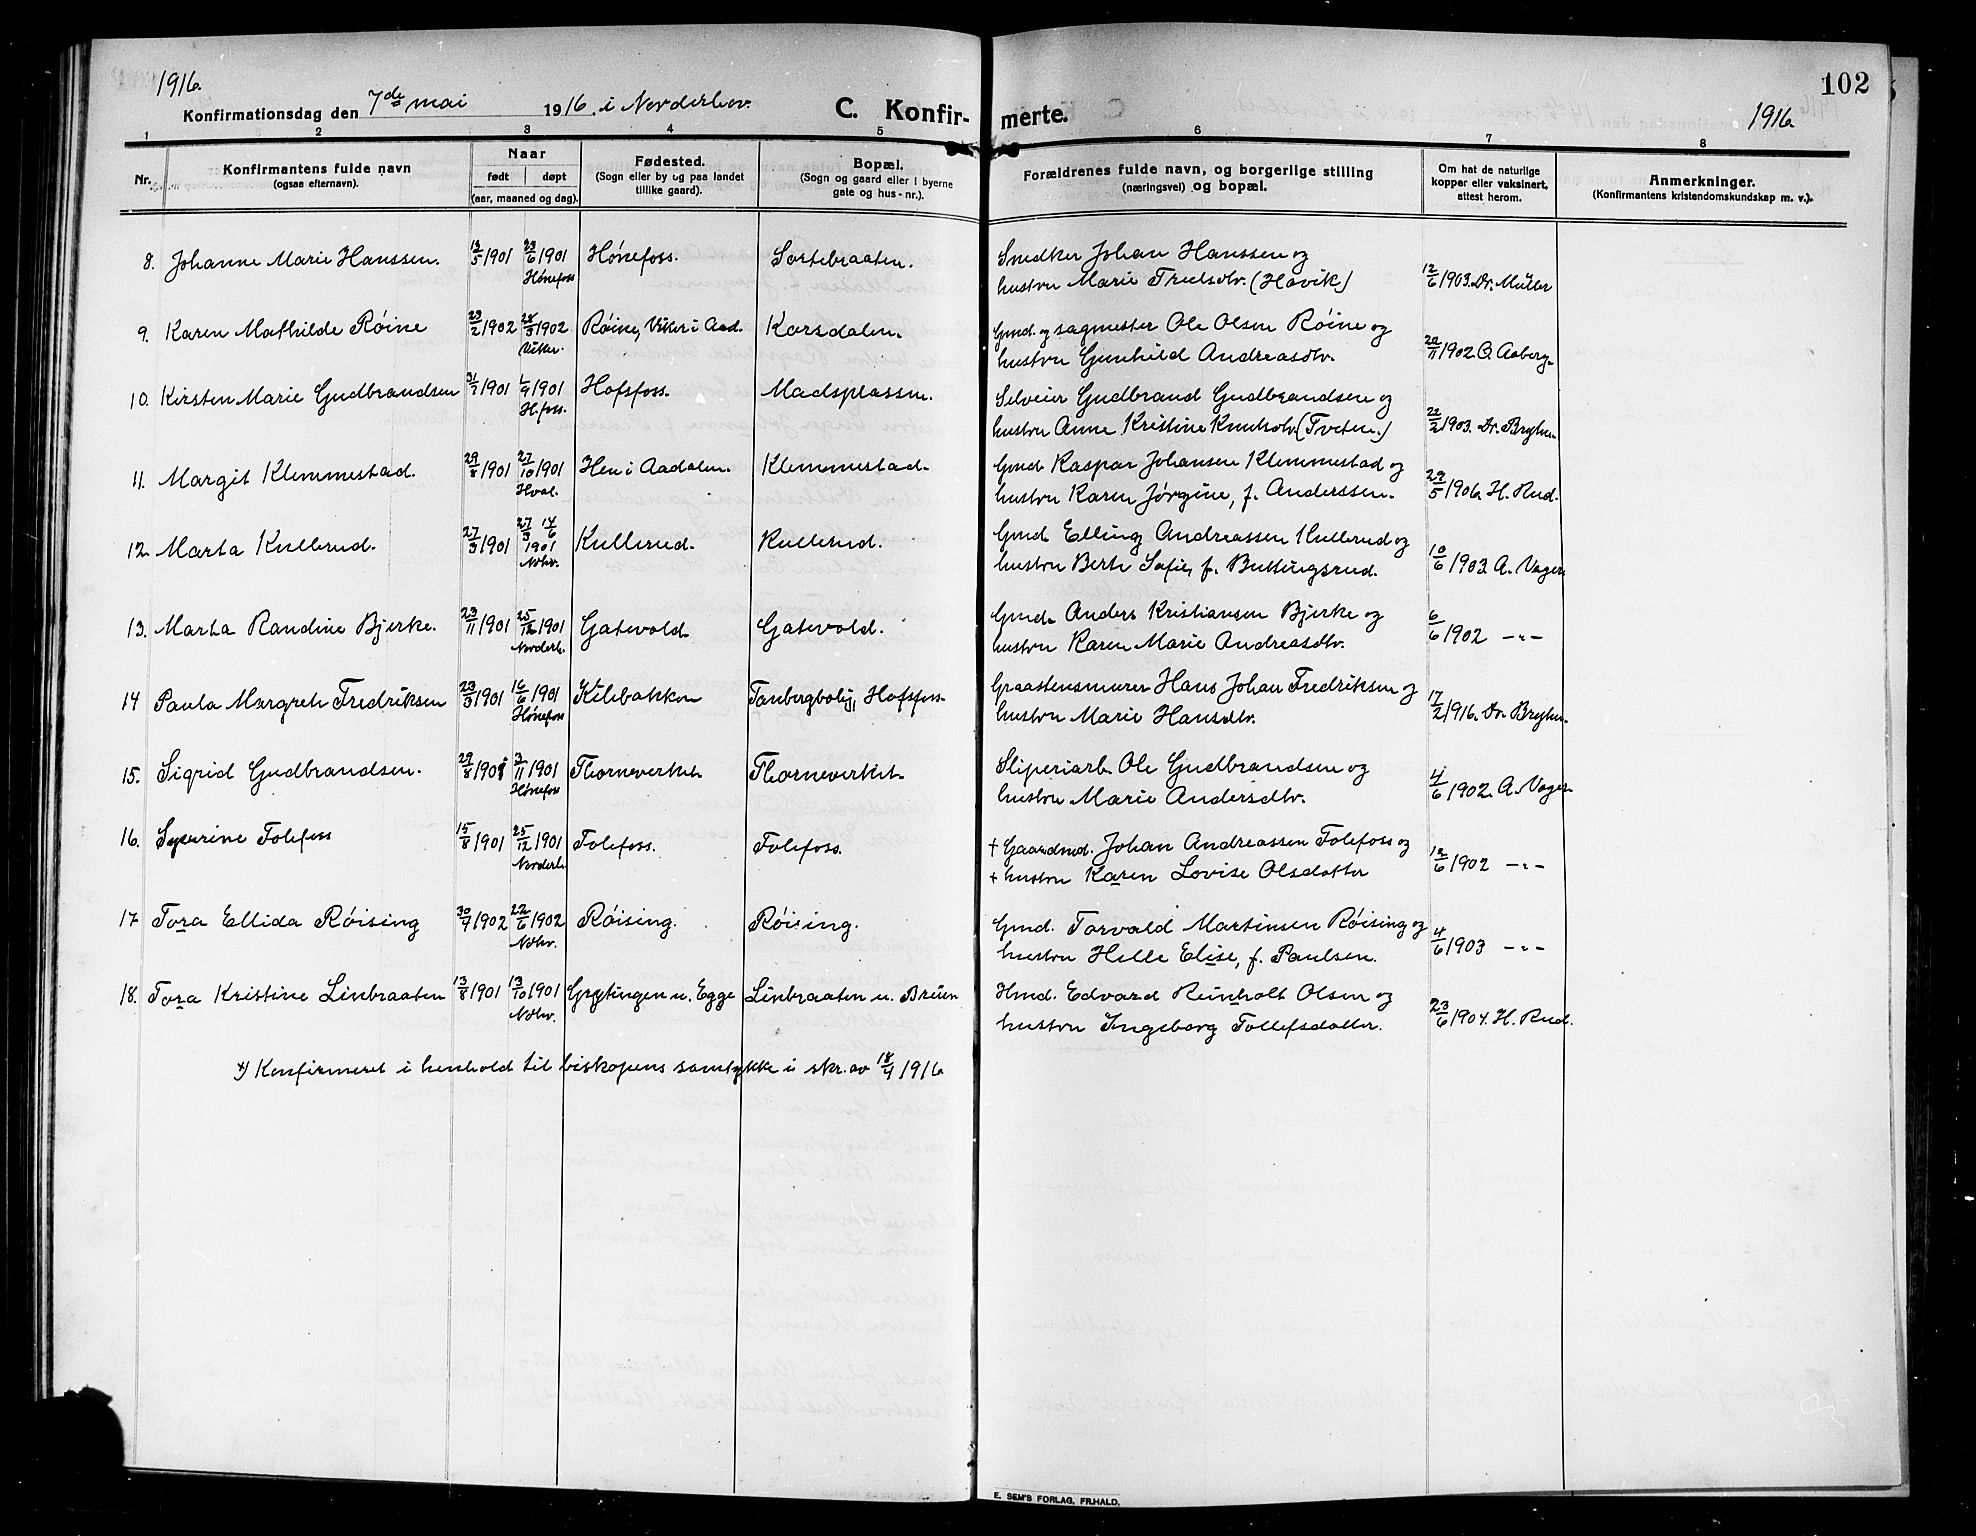 102
1916.
1916.
Konfirmationsdag den 7de mai 1916. i Norderhov.
C. Konfirmerte.
1 2 3 4 5 6 7 8
Nr.
Konfirmantens fulde navn
(ogsaa efternavn).
Naar
født døpt
(aar, maaned og dag).
Fødested.
(Sogn eller by og paa landet
tillike gaard).
Bopæl.
(Sogn og gaard eller i byerne
gate og hus-nr.).
Forældrenes fulde navn, og borgerlige stilling
(næringsvei) og bopæl.
Om hat de naturlige
kopper eller vaksinert,
attest herom.
Anmerkninger.
(Konfirmantens kristendomskundskap m. v.).
8. Johanne Marie Hanssen. 13/5 1901 23/6 1901 Hønefoss. Sortebraaten. Snedker Johan Hanssen og
Hønefoss hustru Marie Truelsdtr. (Høvik) 12/6 1903. Dr. Müller
9. Karen Mathilde Røine 23/2 1902 1902 Røine, Viker i Aad. Karsdalen. Gmd. og sagmester Ole Olsen Røine og
Viker. hustru Gunhild Andreasdtr. 20/11 1902 O. Aaberg.
10. Kirsten Marie Gudbrandsen 31/7 1901 1/9 1901 Hofsfoss. Madsplassen. Selveier Gudbrand Gudbrandsen og
H.foss. hustru Anne Kristine Knutsdtr. (Tveten.) 22/2 1903. Dr. Bryhn.
11. Margit Klemmestad. 29/8 1901 27/10 1901 Hen i Aadalen. Klemmestad. Gmd. Kaspar Johansen Klemmestad og
Hval. hustru Karen Jørgine, f. Anderssen. 29/5 1906. H. Rud.
12. Marta Kullerud. 27/3 1901 27/3 14/6 1901 Kullerud. Kullerud. Gmd. Elling Andreassen Kullerud og
Nohv. hustru Berte Sofie, f. Buttingsrud. 10/6 1903. A. Vager.
13. Marta Randine Bjerke. 23/11 1901 25/12 1901 Gatevold. Gatevold. Gmd. Anders Kristiansen Bjerke og
Norderh. hustru Karen Marie Andreasdtr. 6/6 1902 —„—
14 Paula Margrete Fredriksen 23/3 1901 16/6 1901 Kilebakken Tanbergbolig, Hofsfoss. Graastensmurer Hans Johan Fredriksen og
Hønefoss hustru Marie Hansdtr. 17/2 1916. Dr. Bryhn.
15. Sigrid Gudbrandsen. 29/8 1901 3/11 1901 Thorneverket. Thorneverket. Sliperiarb. Ole Gudbrandsen og
Hønefoss hustru Marie Andersdtr. 4/6 1902. A. Vager.
16. Syverine Folefoss 15/8 1901 25/12 1901 Folefoss. Folefoss. † Gaardmd. Johan Andreassen Folefoss og
Norderh. † hustru Karen Lovise Olsdatter 12/6 1902 —„—
17 Tora Ellida Røising 30/4 1902 22/6 1902 Røising. Røising. Gmd. Torvald Martinsen Røising og
Nohv. hustru Helle Elise, f. Paulsen. 4/6 1903 —„—
18. Tora Kristine Linbraaten 13/8 1901 13/10 1901 Grytingen u. Egge Linbraaten u. Breien Hmd. Edvard Reinholt Olsen og
Nohv. hustru Ingeborg Tollefsdatter. 23/6 1904. H. Rud.
*) Konfirmeret i henhold til biskopens samtykke i skr. av 18/4 1916
E. SEM'S FORLAG, FR.HALD.